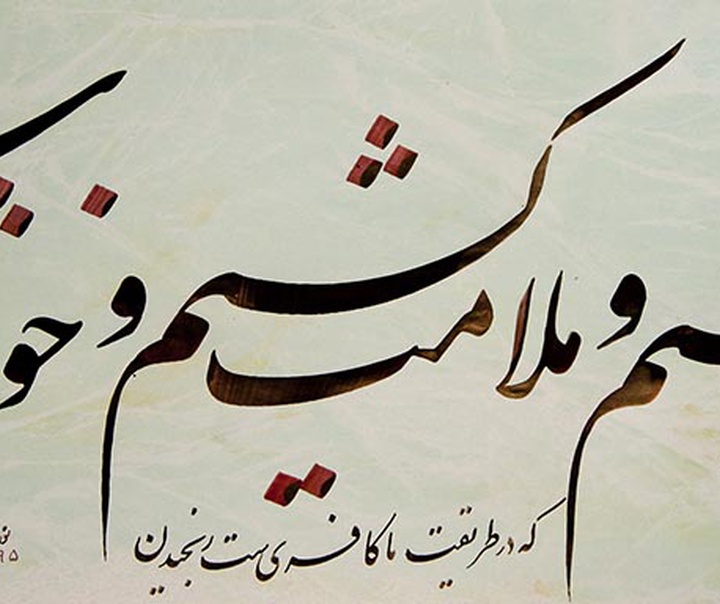 یم و ملامت کشیم و خو
که در طریقت ما کافری ست رنجیدن
۹۵